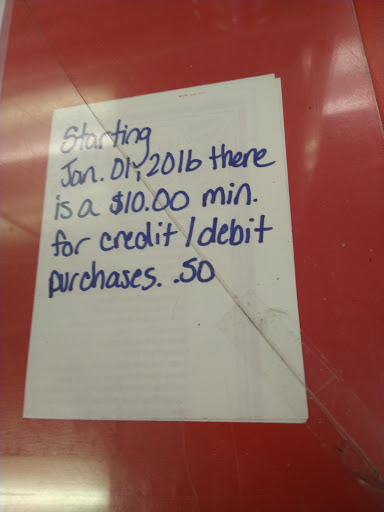 Starting
Jan. 01, 2016 there
is a $10.00 min.
for credit / debit
purchases. .50